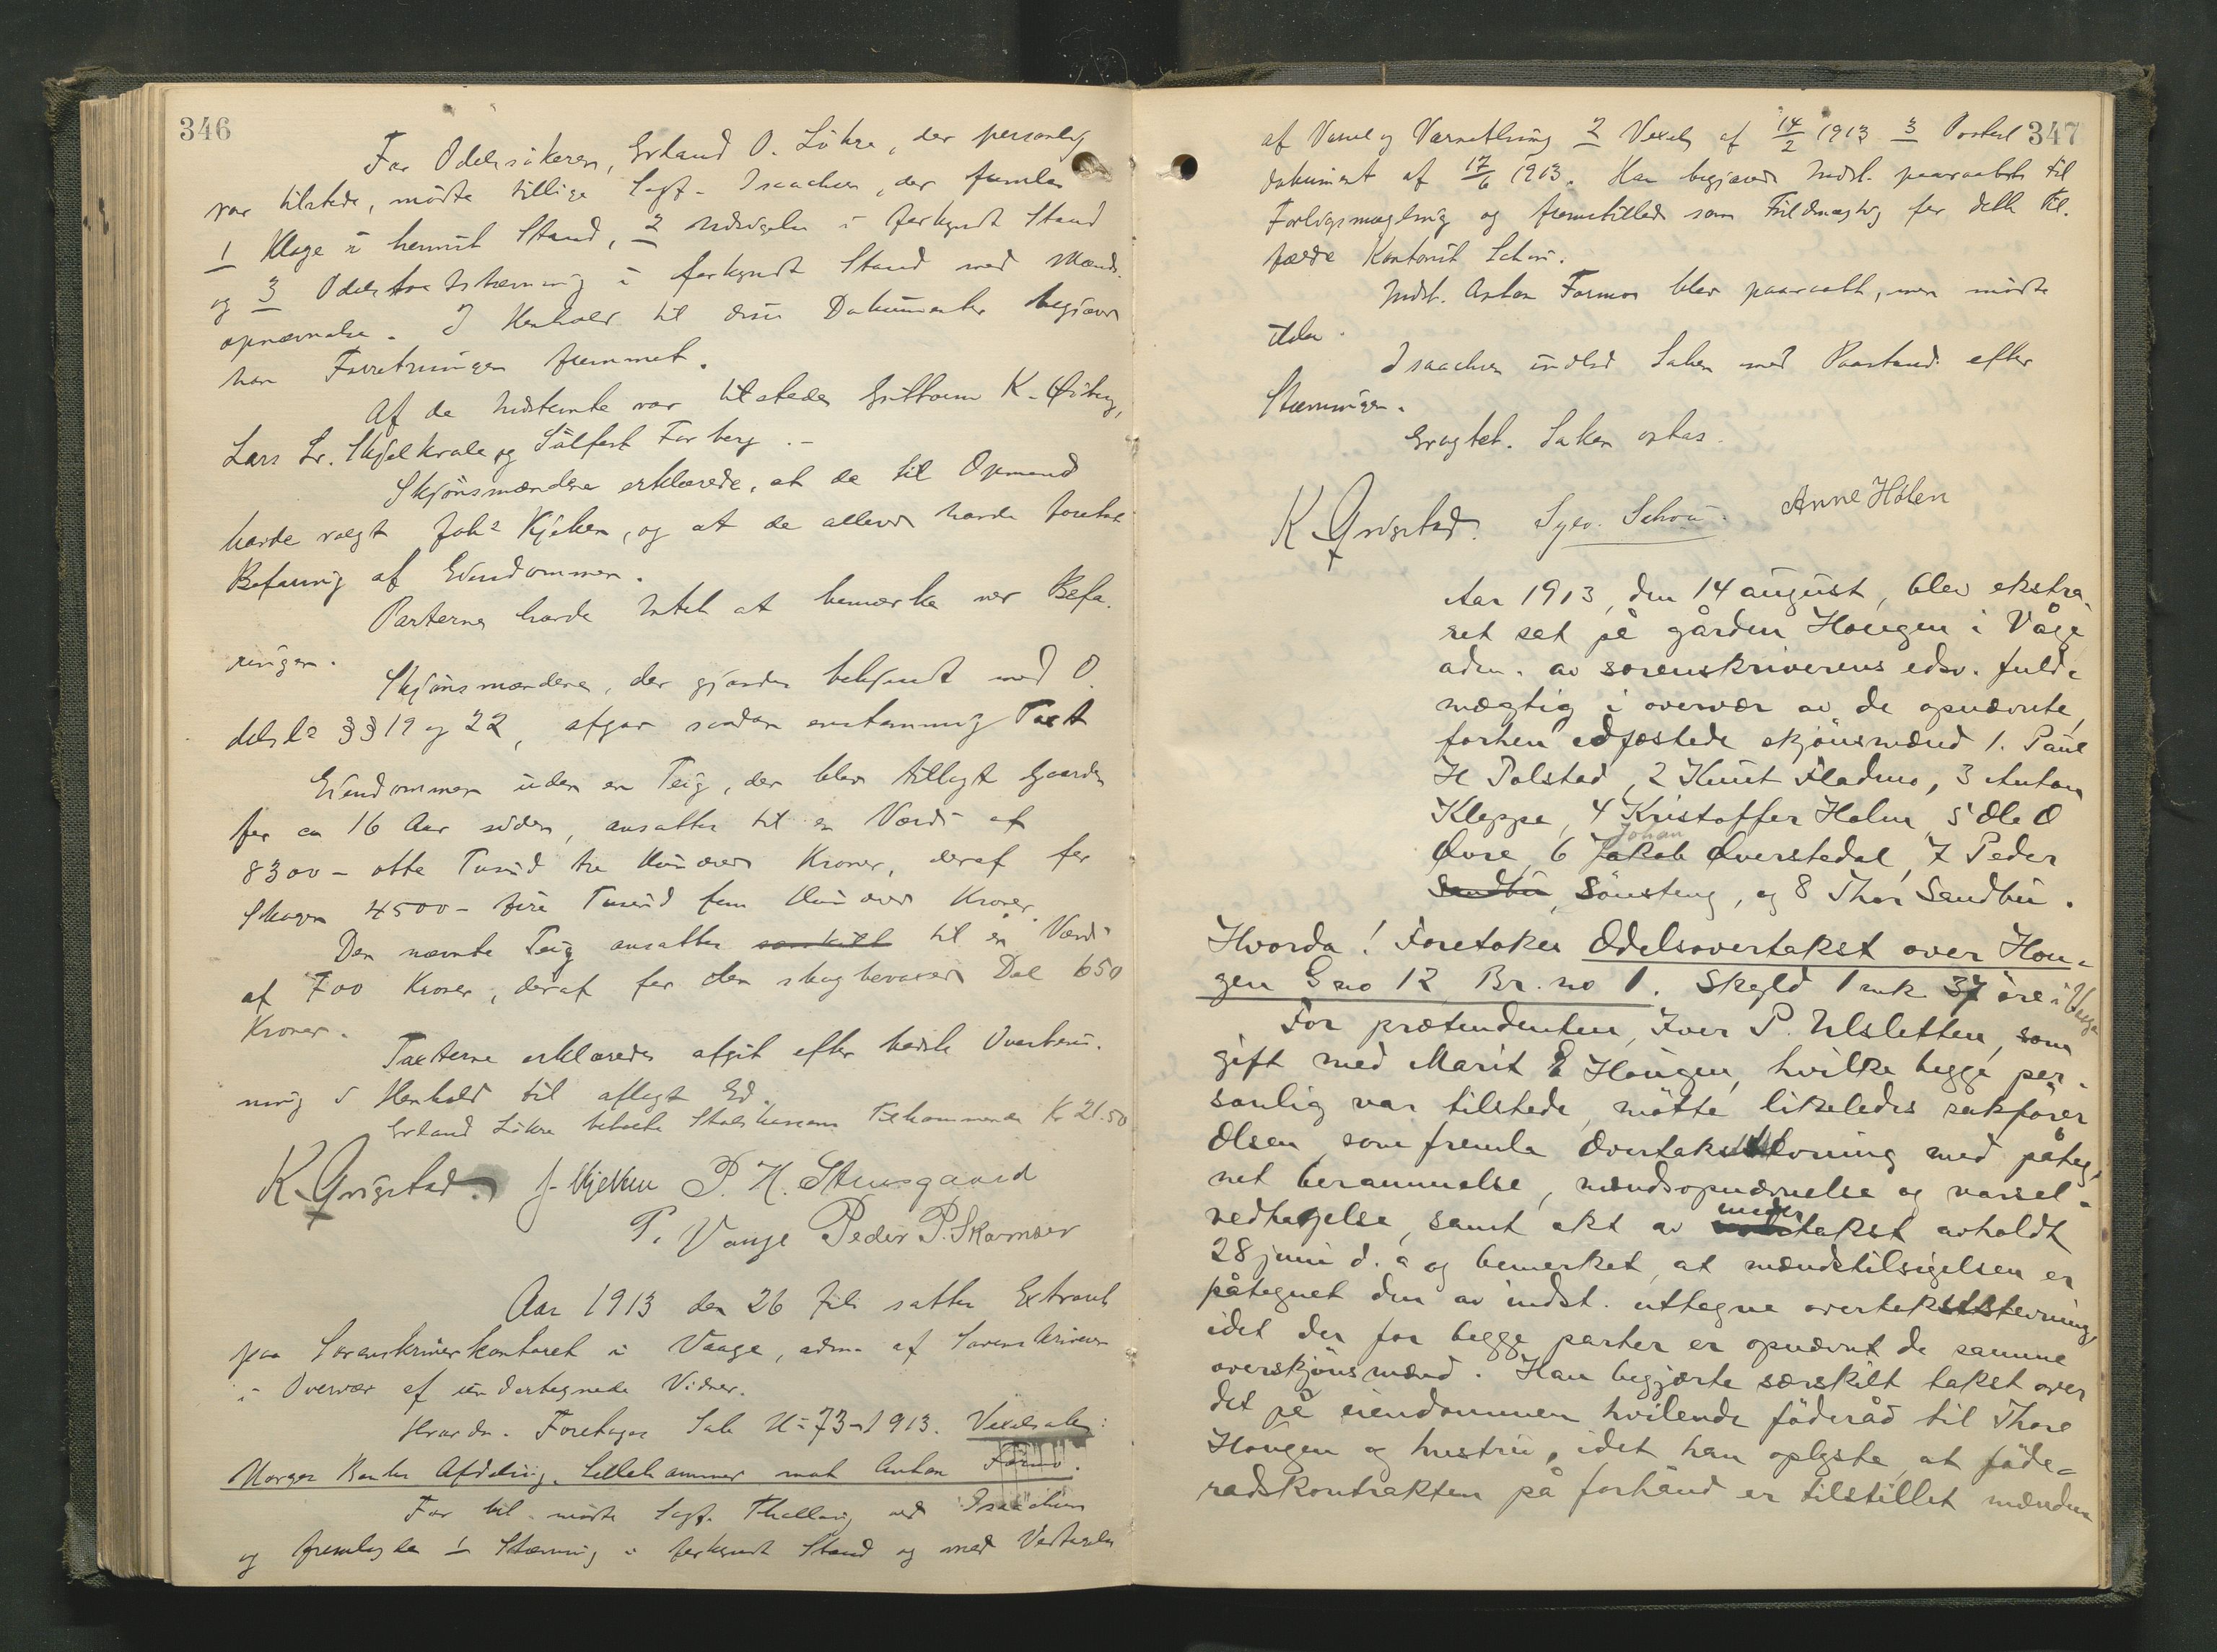 346
For Odelssökeren, Erland O. Lökre, der personlig
var tilstede, mödte tillige Sagf. Isaachsen, der fremla
1 Klage i hennit Stand, 2 Udsigelse i forkyndt Stand
og 3 Odelstaxtstævning i forkyndt Stand med Mænds-
opnævnelse. I Henhold til disse Dokumenter begjæred
han Forretningen fremmet.
Af de Indstevnte var tilstede Guttorm K. Öiberg,
Lars Lr. Skjelkvale og Sülfest Forberg. –
Skjönsmændene erklærede, at de til Opmand
havde valgt Joh Kjeken, og at de allerede havde foretat
Befaring af Eiendommen.
Parterne havde Intet at bemærke ved Befa-
ringen.
Skjönsmændene, der gjordes bekjendt med O-
delsl §§ 19 og 22, afgav saadan enstemmig Taxt
Eiendommen uden en Teig, der blev tillagt Gaarden
for ca 16 Aar siden, ansattes til en Værdi af
8300 – otte Tusind tre Hundrede Kroner, deraf for
Skogen 4500 – fire Tusind fem Hundrede Kroner.
Den nævnte Teig ansattes særskilt til en Værdi
af 700 Kroner, deraf for den skogbevoxede Del 650
Kroner.
Taxterne erklæredes afgit efter bedste Overbevis-
ning i Henhold til aflagt Ed.
Erland Lökre betalte Statskassens Tilkommende Kr 21.50
K. Grigstad. J. Kjekken P. H. Stensgaard
P. Vange Peder P. Skarnæer
Aar 1913 den 26 Juli sattes Extraret
paa Sorenskriverkontoret i Vaage, adm. af Sorenskriveren
i Overvær af undertegnede Vidner.
Hvorda. Foretages Sak No 73-1913. Vexelsak:
Norges Banks Afdeling Lillehammer mot Anton Formo.
For Cit. mödte Sagf. Thallaug ved Isaachsen
og fremlagde 1 Stævning i forkyndt Stand og med Vedtagelse
347
af Varsel og Værnething 2 Vexel af 14/2 1913 3 Protest
dokument af 17/6 1913. Han begjærede Indst. paaraabt til
Forligsmægling og fremstillede som Fuldmægtig for dette Til-
fælde Kontorist Schou.
Indst. Anton Formo blev paaraabt, men mödte
ikke.
Isaachsen indlod Saken med Paastand efter
Stævningen.
Eragtet. Saken optas.
K. Grigstad. Sylv. Schou. Anne Holen
Aar 1913, den 14 august, blev ekstra-
ret sat på gården Hougen i Våge
adm. av sorenskriverens edsv. fuld-
mægtig i overvær av de opnævnte,
forhen edfæstede skjönsmænd 1. Paul
H Tolstad, 2 Knut Fladmo, 3 Anton
Kleppe, 4 Kristoffer Holm, 5 Ole O
Johan
Övre, 6 Jakob Överstedal, 7 Peder
Sandbu, Sönsteng, og 8 Thor Sandbu.
Hvorda! Foretokes Odelsovertakst over Hou-
gen Gno 12 Br. no 1. Skyld 1 mk 37 öre i Vaage
For prætendenten, Iver P. Ulsletten, som
gift med Marit E Hougen, hvilke begge per-
sonlig var tilstede, mötte likeledes sakförer
Olsen, som fremla Overtakststevning med påteg-
net berammelse, mændsopnævnelse og varsel-
vedtagelse, samt akt av
under
takst avholdt
28 juni d. a og bemerket, at mændstilsigelsen er
påtegnet den av indst. uttagne overtakststevning,
idet der for begge parter er opnævnt de samme
overskjönsmænd. Han begjærte særskilt takst over
det på eiendommen hvilende föderåd til Thore
Hougen og hustru, idet han oplyste, at föde-
rådskontrakten på forhånd er tilstillet mændene